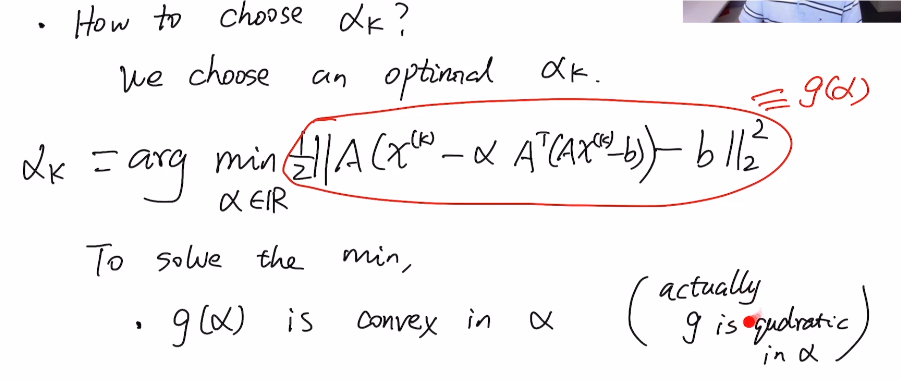 · How to choose αk?
We choose an optimal αk.
≡ g(α)
αk = arg min α∈ℝ ½||A(x^(k) − α Aᵀ(Ax^(k)−b)) − b||₂²
To solve the min,
· g(α) is convex in α
(actually
g is qudratic
in α)